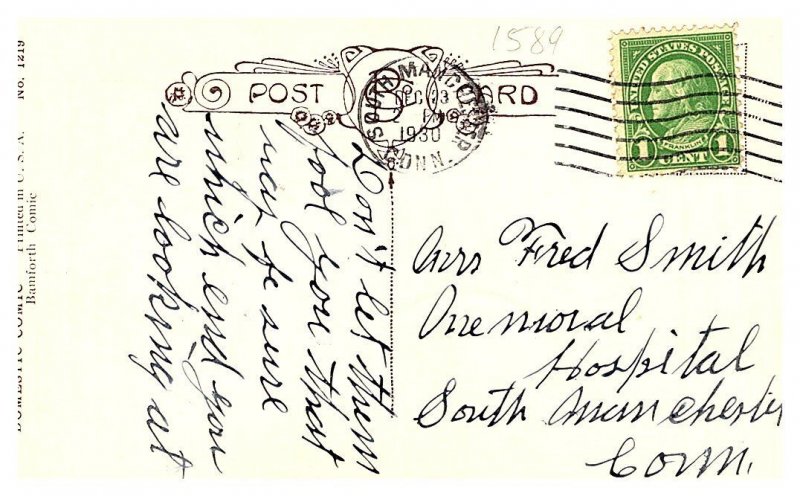 1589
POST CARD
SOUTH MANCHESTER
DEC 3
1930
CONN.
UNITED STATES POSTAGE
FRANKLIN
1 CENT 1
Don't let them
fool you that
way be sure
which end you
are looking at
Mrs Fred Smith
Memoral
Hospital
South Manchester
Conn.
DOMESTIC COMIC Printed in U.S.A. No. 1219
Bamforth Comic